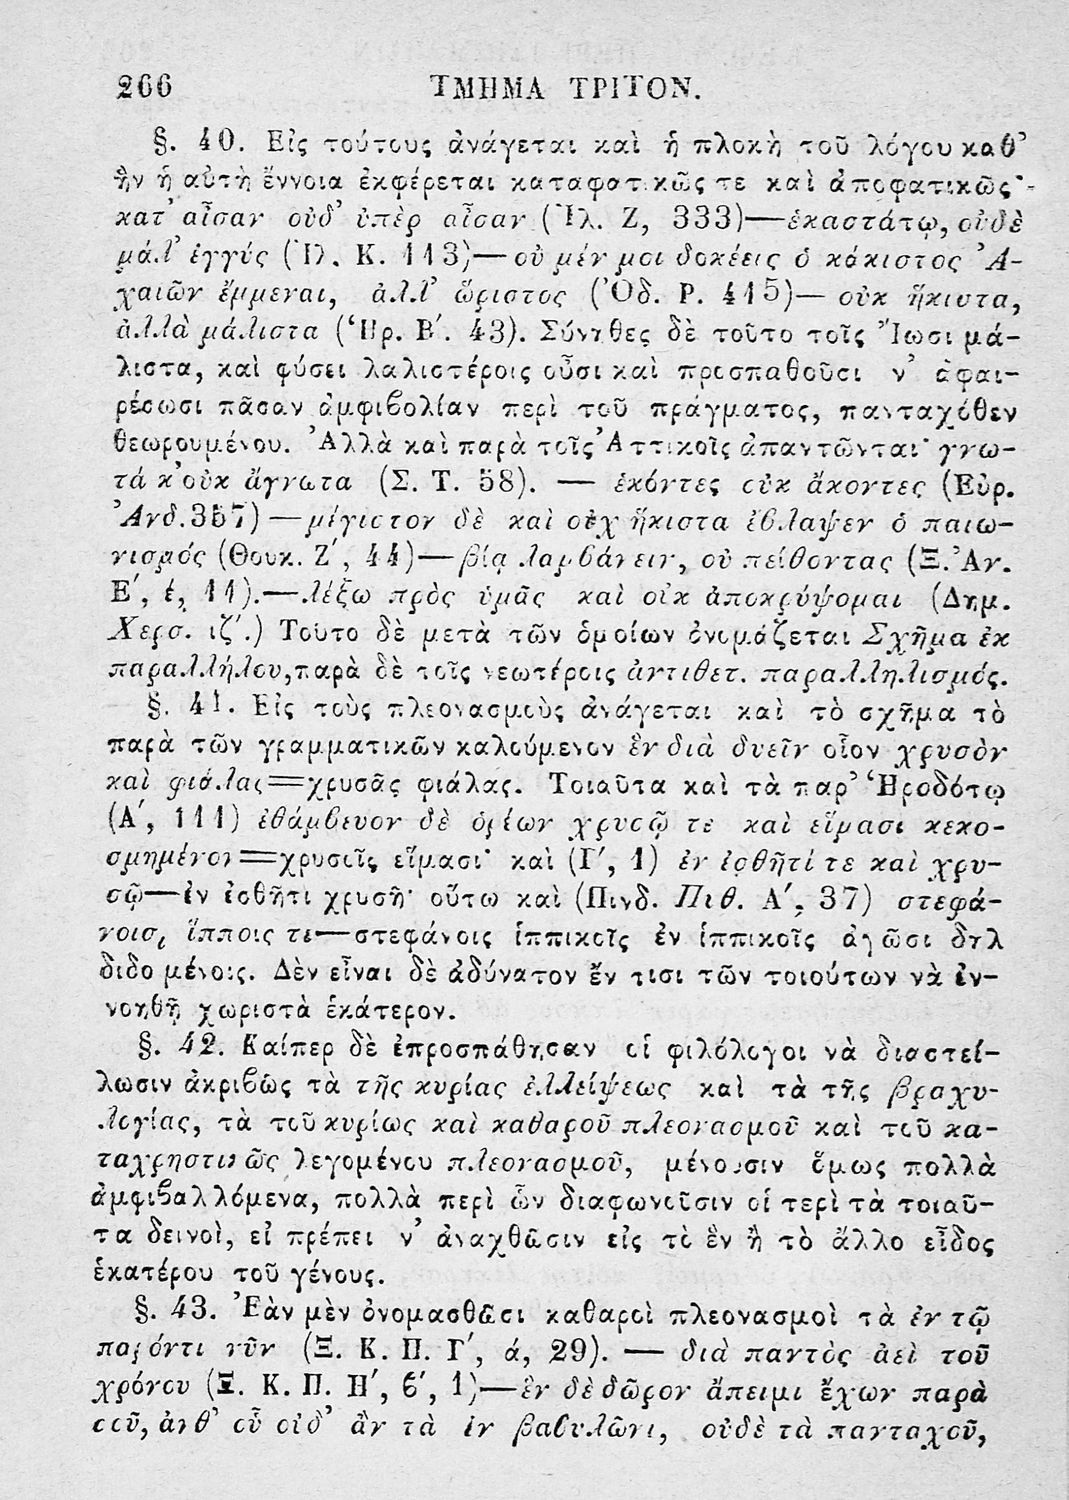 266 ΤΜΗΜΑ ΤΡΙΤΟΝ.
§. 40. Εἰς τούτους ἀνάγεται καὶ ἡ πλοκὴ τοῦ λόγου καθ᾽
ἣν ἡ αὐτὴ ἔννοια ἐκφέρεται καταφατικῶς τε καὶ ἀποφατικῶς·
κατ᾽ αἶσαν οὐδ᾽ ὑπὲρ αἶσαν (Ἰλ. Ζ, 333)—ἑκαστάτω, οὐδὲ
μάλ᾽ ἐγγύς (Ἰλ. Κ. 113)—οὐ μέν μοι δοκέεις ὁ κάκιστος Ἀ-
χαιῶν ἔμμεναι, ἀλλ᾽ ὥριστος (Ὀδ. Ρ. 415)— οὐκ ἥκιστα,
ἀλλὰ μάλιστα (Ἡρ. Β΄. 43). Σύνηθες δὲ τοῦτο τοῖς Ἴωσι μά-
λιστα, καὶ φύσει λαλιστέροις οὖσι καὶ προσπαθοῦσι ν᾽ ἀφαι-
ρέσωσι πᾶσαν ἀμφιβολίαν περὶ τοῦ πράγματος, πανταχόθεν
θεωρουμένου. Ἀλλὰ καὶ παρὰ τοῖς Ἀττικοῖς ἀπαντῶνται· γνω-
τά κ᾽ οὐκ ἄγνωτα (Σ. Τ. 58). — ἑκόντες οὐκ ἄκοντες (Εὐρ.
Ἀνδ. 357)—μέγιστον δὲ καὶ οὐχ ἥκιστα ἔβλαψεν ὁ παιω-
νισμός (Θουκ. Ζ΄, 44)—βίᾳ λαμβάνειν, οὐ πείθοντας (Ξ. Ἀν.
Ε΄, έ, 11).—λέξω πρὸς ὑμᾶς καὶ οὐκ ἀποκρύψομαι (Δημ.
Χερσ. ιζ΄.) Τοῦτο δὲ μετὰ τῶν ὁμοίων ὀνομάζεται Σχῆμα ἐκ
παραλλήλου, παρὰ δὲ τοῖς νεωτέροις ἀντιθετ. παραλληλισμός.
§. 41. Εἰς τοὺς πλεονασμοὺς ἀνάγεται καὶ τὸ σχῆμα τὸ
παρὰ τῶν γραμματικῶν καλούμενον ἓν διὰ δυεῖν οἷον χρυσὸν
καὶ φιάλας=χρυσᾶς φιάλας. Τοιαῦτα καὶ τὰ παρ᾽ Ἡροδότῳ
(Α΄, 111) ἐθάμβευον δὲ ὁρέων χρυσῷ τε καὶ εἵμασι κεκο-
σμημένον=χρυσοῖς εἵμασι· καὶ (Γ΄, 1) ἐν ἐσθῆτί τε καὶ χρυ-
σῷ—ἐν ἐσθῆτι χρυσῇ· οὕτω καὶ (Πινδ. Πιθ. Α΄, 37) στεφά-
νοισι ἵπποις τε—στεφάνοις ἱππικοῖς ἐν ἱππικοῖς ἀγῶσι δηλ
διδομένοις. Δὲν εἶναι δὲ ἀδύνατον ἔν τισι τῶν τοιούτων νὰ ἐν-
νοηθῇ χωριστὰ ἑκάτερον.
§. 42. Καίπερ δὲ ἐπροσπάθησαν οἱ φιλόλογοι νὰ διαστεί-
λωσιν ἀκριβῶς τὰ τῆς κυρίας ἐλλείψεως καὶ τὰ τῆς βραχυ-
λογίας, τὰ τοῦ κυρίως καὶ καθαροῦ πλεονασμοῦ καὶ τοῦ κα-
ταχρηστικῶς λεγομένου πλεονασμοῦ, μένουσιν ὅμως πολλὰ
ἀμφιβαλλόμενα, πολλὰ περὶ ὧν διαφωνοῦσιν οἱ περὶ τὰ τοιαῦ-
τα δεινοὶ, εἰ πρέπει ν᾽ ἀναχθῶσιν εἰς τὸ ἓν ἢ τὸ ἄλλο εἶδος
ἑκατέρου τοῦ γένους.
§. 43. Ἐὰν μὲν ὀνομασθῶσι καθαροὶ πλεονασμοὶ τὰ ἐν τῷ
παρόντι νῦν (Ξ. Κ. Π. Γ΄, ά, 29). — διὰ παντὸς ἀεὶ τοῦ
χρόνου (Ξ. Κ. Π. Η΄, β΄, 1)—ἓν δὲ δῶρον ἄπειμι ἔχων παρὰ
σοῦ, ἀνθ᾽ οὗ οὐδ᾽ ἂν τὰ ἐν βαβυλῶνι, οὐδὲ τὰ πανταχοῦ,